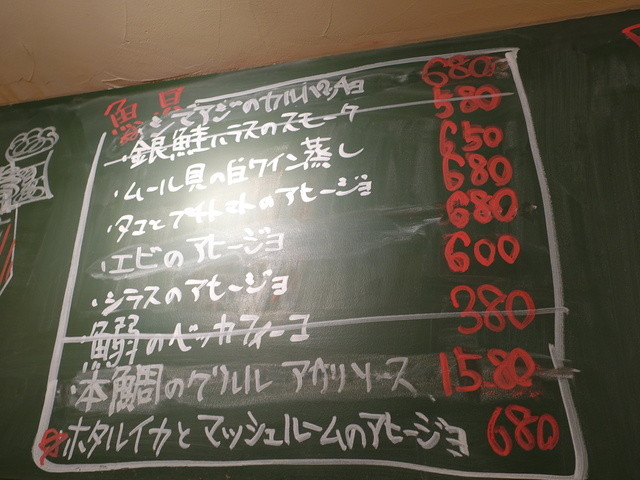 魚貝
シマアジのカルパッチョ 680
・銀鮭ハラスのスモーク 580
・ムール貝の白ワイン蒸し 650
・タコとプチトマトのアヒージョ 680
・エビのアヒージョ 680
・シラスのアヒージョ 600
・鰯のベッカフィーコ 380
・本鯛のグリル アサリソース 1580
ホタルイカとマッシュルームのアヒージョ 680